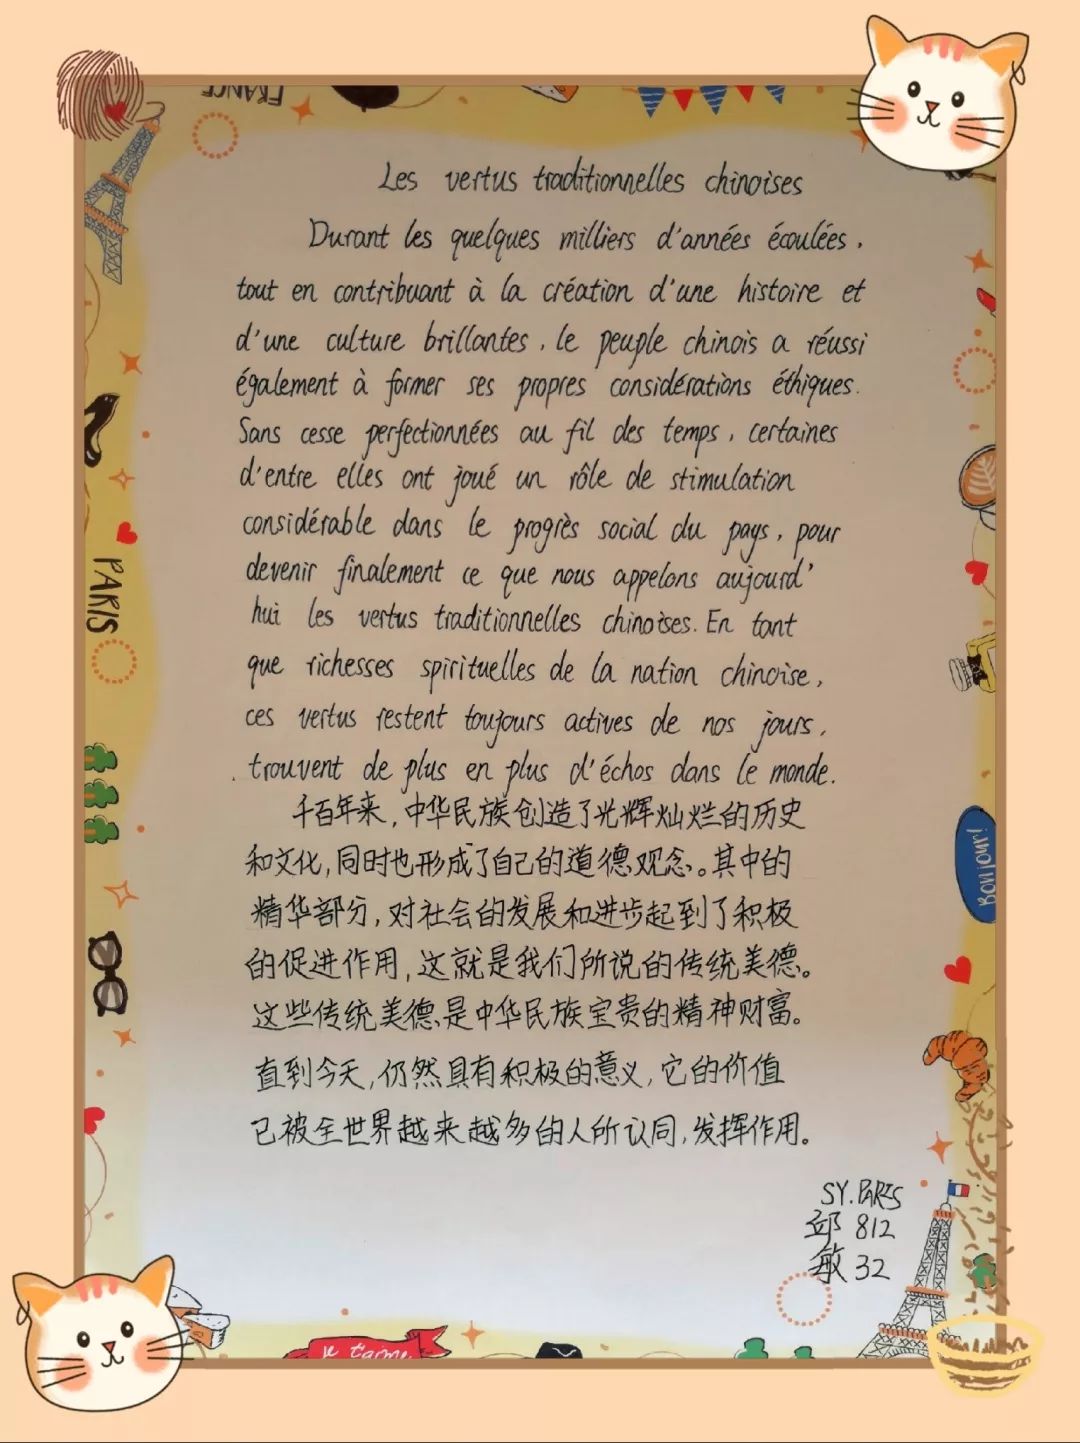 FRANCE
Les vertus traditionnelles chinoises
Durant les quelques milliers d'années écoulées,
tout en contribuant à la création d'une histoire et
d'une culture brillantes, le peuple chinois a réussi
également à former ses propres considérations éthiques.
Sans cesse perfectionnées au fil des temps, certaines
d'entre elles ont joué un rôle de stimulation
considérable dans le progrès social du pays, pour
devenir finalement ce que nous appelons aujourd'
hui les vertus traditionnelles chinoises. En tant
que richesses spirituelles de la nation chinoise,
ces vertus restent toujours actives de nos jours,
trouvent de plus en plus d'échos dans le monde.
千百年来,中华民族创造了光辉灿烂的历史
和文化,同时也形成了自己的道德观念。其中的
精华部分,对社会的发展和进步起到了积极
的促进作用,这就是我们所说的传统美德。
这些传统美德是中华民族宝贵的精神财富。
直到今天,仍然具有积极的意义,它的价值
已被全世界越来越多的人所认同,发挥作用。
SY.PARIS
邱 812
敏 32
PARIS
Bonjour!
Je t'aime